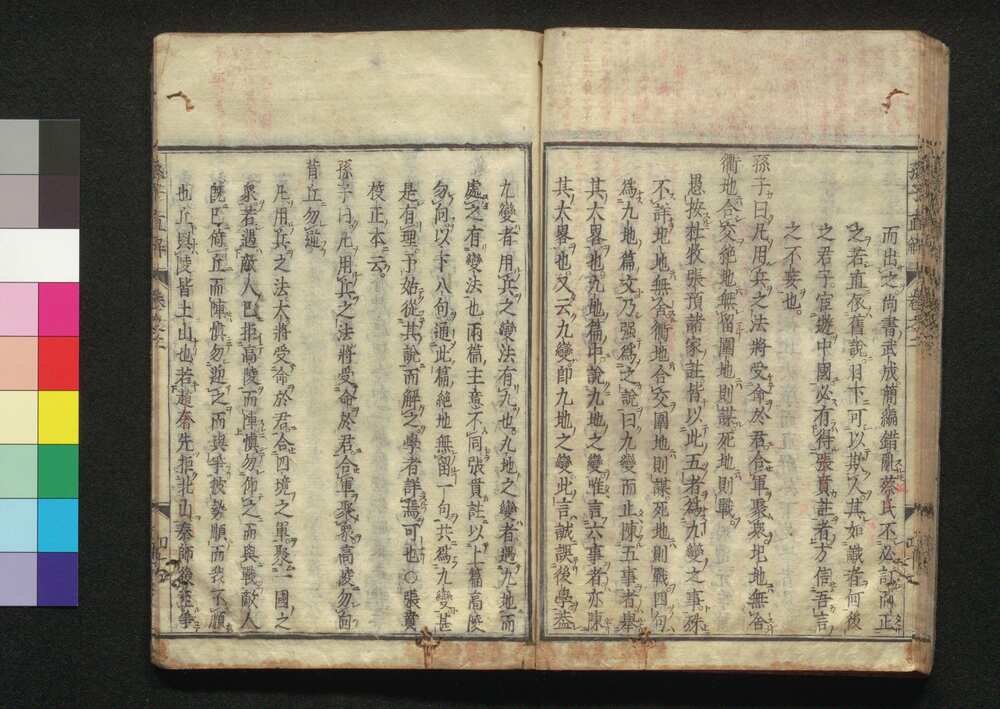 而出之尚書武成簡編錯亂蔡氏不必訂而正
之若直依舊說目下可以欺人其如識者何後
之君子宦遊中國必有得張賁註者方信吾言
之不妄也
孫子曰凡用兵之法將受命於君合軍聚衆圮地無舍
衢地合交絶地無留圍地則謀死地則戰
愚按杜牧張預諸家註皆以此五者為九變之事殊
不詳圮地無舍衢地合交圍地則謀死地則戰四句
為九地篇文乃强為之說曰九變而止陳五事者舉
其大畧也九地篇中說九地之變惟言六事者亦陳
其大畧也又云九變即九地之變此言誠誤後學蓋
九變者用兵之變法有九也九地之變者遇九地而
處之有變法也兩篇主意不同張賁註以上篇高陵
勿向以下八句通此篇絶地無留一句共為九變甚
是有理予始從其說而解之學者詳焉可也○張賁
校正本云
孫子曰凡用兵之法將受命於君合軍聚衆高陵勿向
背丘勿逆
凡用兵之法大將受命於君合四境之軍聚一國之
衆若遇敵人已拒高陵而陣慎勿仰之而與戰敵人
既已倚丘而陣慎勿迎之而與爭彼勢順而我不順
也丘與陵皆土山也若趙奢先拒北山秦師後至爭